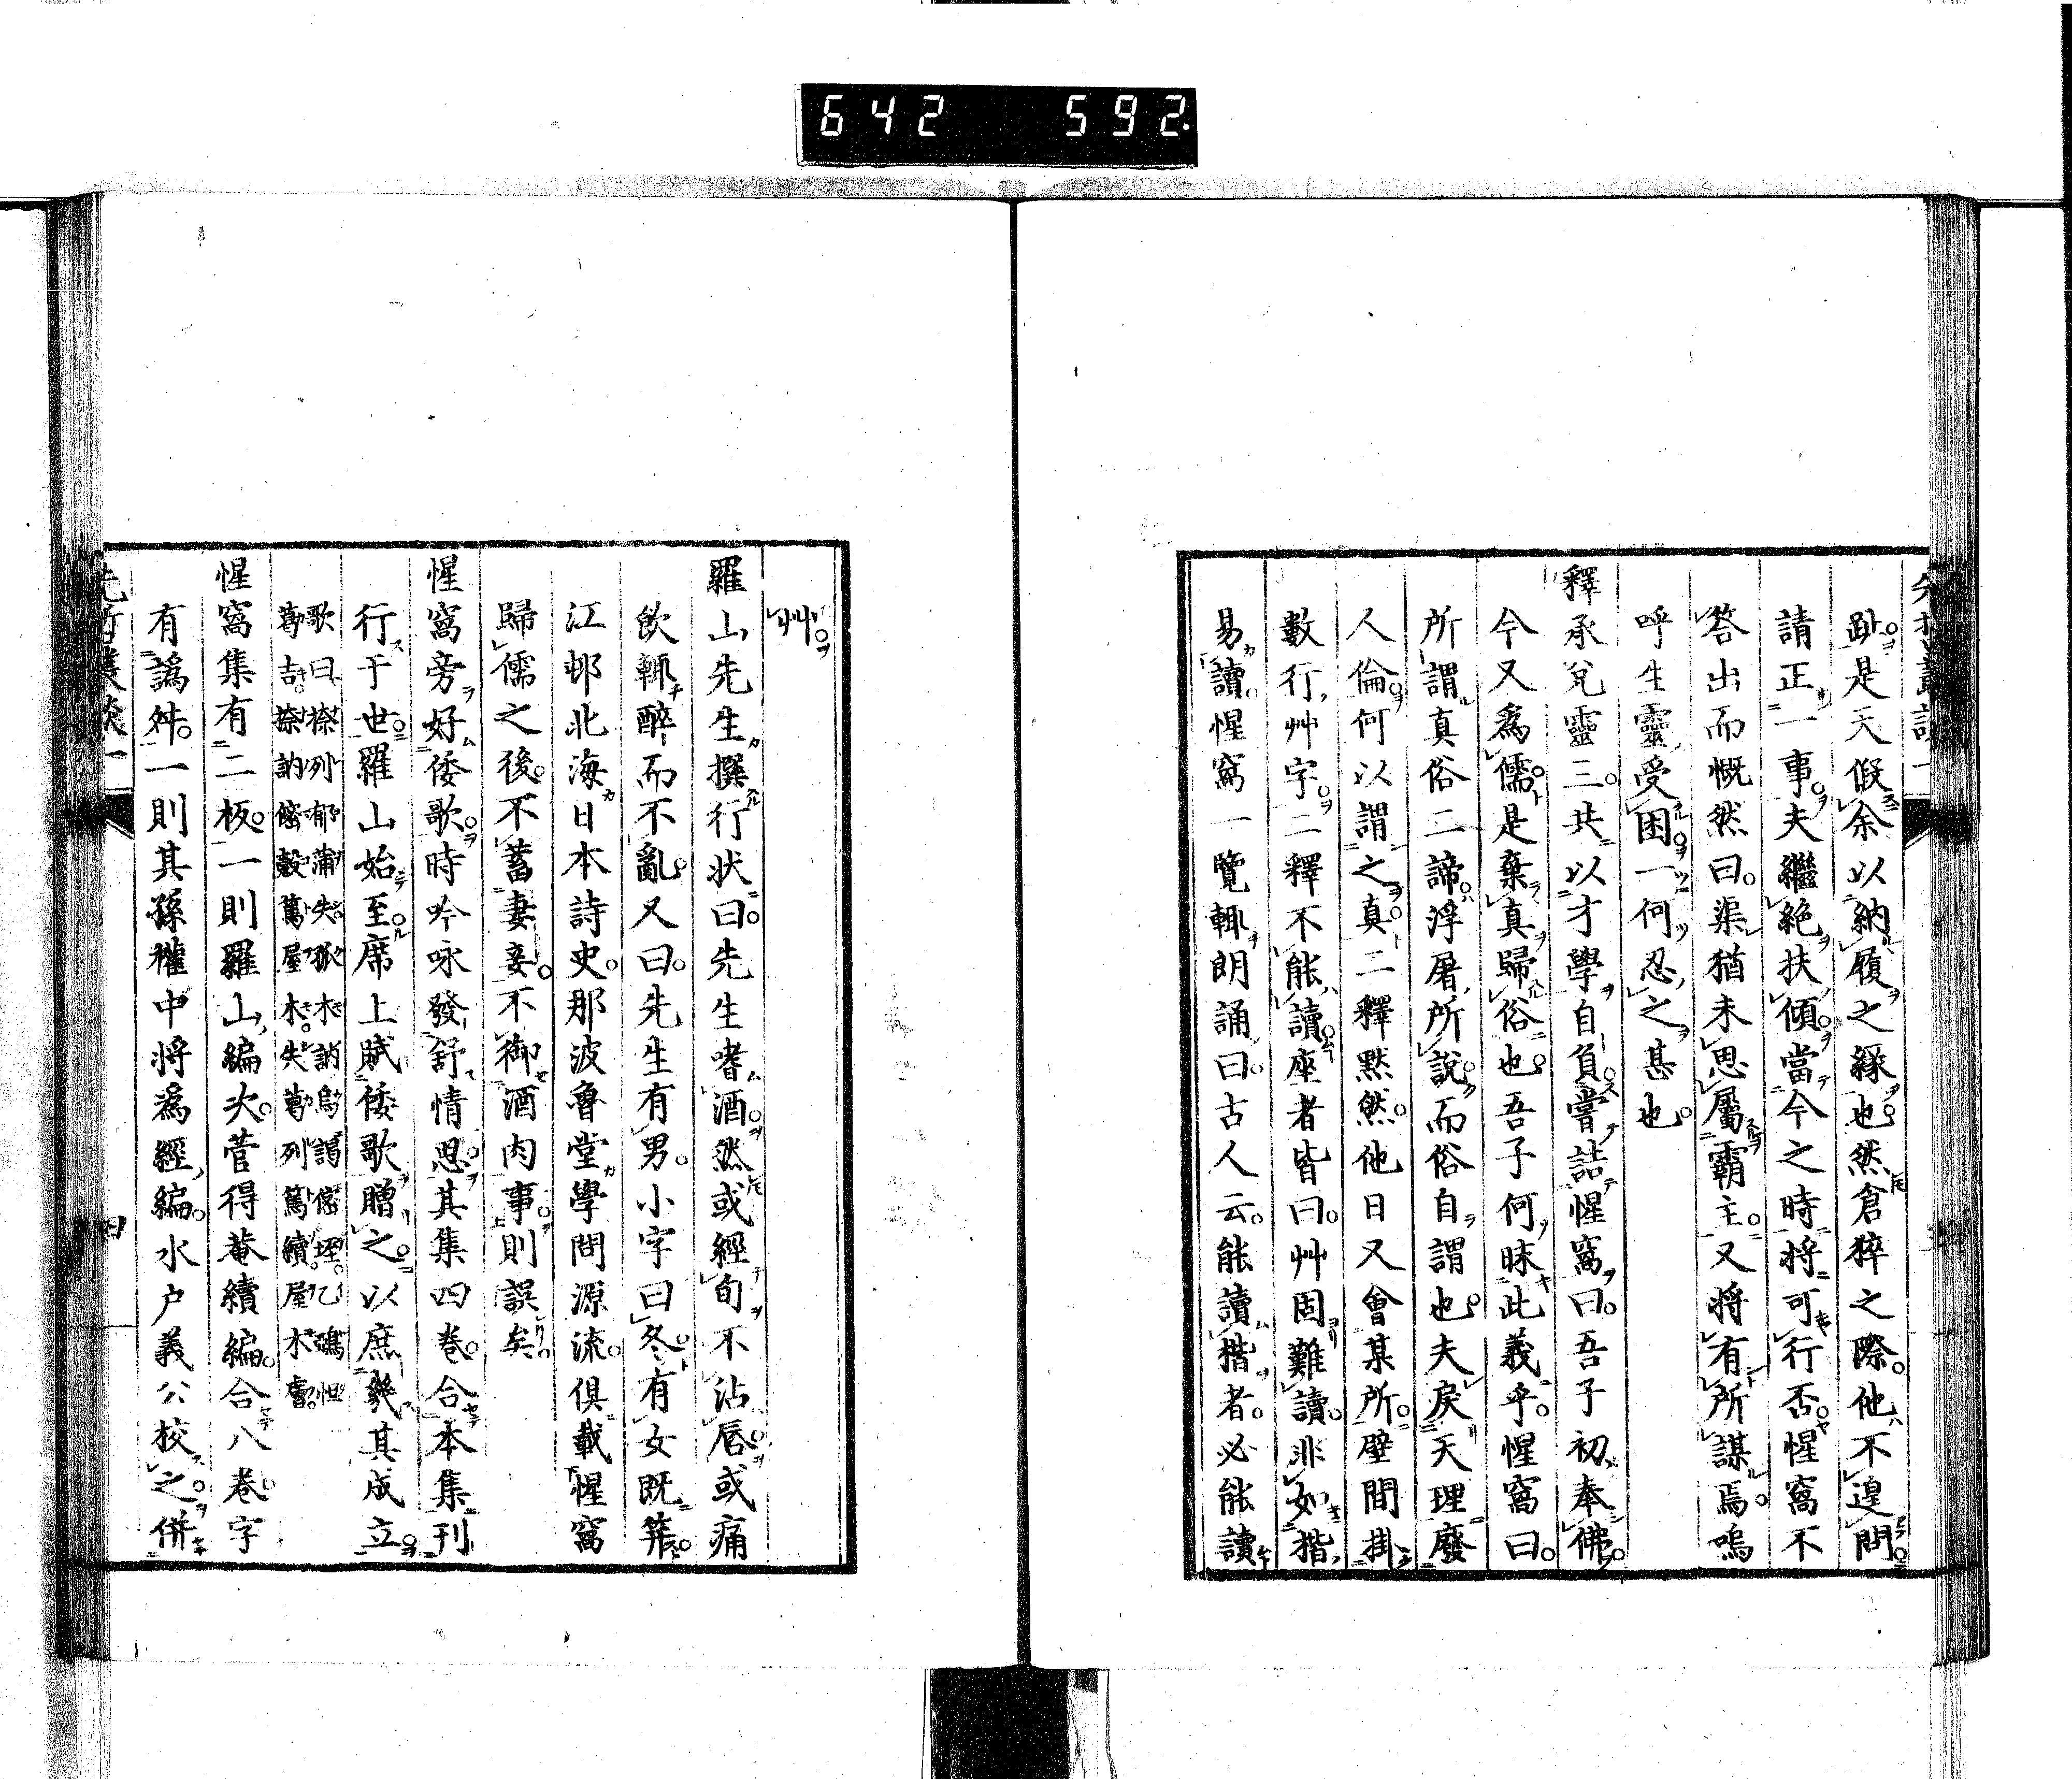 642 592.
趾是天假余以納履之緣也然倉猝之際他不遑問
請正一事夫繼絕扶傾當今之時將可行否惺窩不
答出而慨然曰渠猶未思屬霸主又將有所謀焉嗚
呼生靈受困一何忍之甚也
釋承兌靈三共以才學自負嘗詰惺窩曰吾子初奉佛
今又爲儒是棄真歸俗也吾子何昧此義乎惺窩曰
所謂真俗二諦浮屠所說而俗自謂也夫戾天理廢
人倫何以謂之真二釋黙然他日又會某所壁間掛
數行艸字二釋不能讀座者皆曰艸固難讀非如楷
易讀惺窩一覽輒朗誦曰古人云能讀楷者必能讀
艸
羅山先生撰行状曰先生嗜酒然或經旬不沾唇或痛
飲輒醉而不亂又曰先生有男小字曰冬有女既筓
江邨北海日本詩史那波魯堂學問源流俱載惺窩
歸儒之後不蓄妻妾不御酒肉事則誤矣
惺窩旁好倭歌時吟咏發舒情思其集四卷合本集刊
行于世羅山始至席上賦倭歌贈之以庶幾其成立
歌曰捺列郁蒲失孤木訥烏謁傞坯乙鴻怛
葛吉捺訥傞榖篤屋木失葛列篤續屋木奮
惺窩集有二板一則羅山編次菅得菴續編合八卷字
有譌舛一則其孫權中將爲經編水户義公校之併
先哲叢談一
四